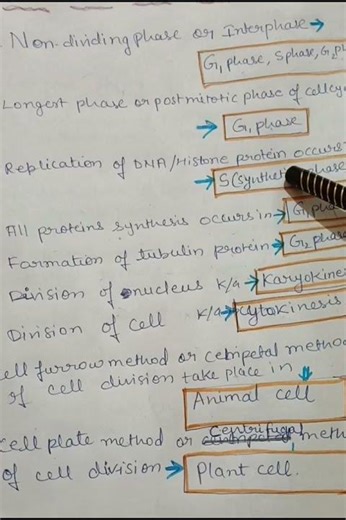 Non-dividing phase or Interphase →
G₁ phase, S phase, G₂ ph
Longest phase or postmitotic phase of cellcy
→ G₁ phase
Replication of DNA/Histone protein occurs
→ S (synthet phase
All proteins synthesis occurs in → G₁ pha
Farmation of tubulin protein → G₂ phase
Division of nucleus k/a → Karyokines
Division of cell k/a → Cytokinesis
ell furrow method or centripetal metho
of cell division take place in ↓
Animal cell
Centrifugal
Cell plate method or meth
of cell division → Plant cell.